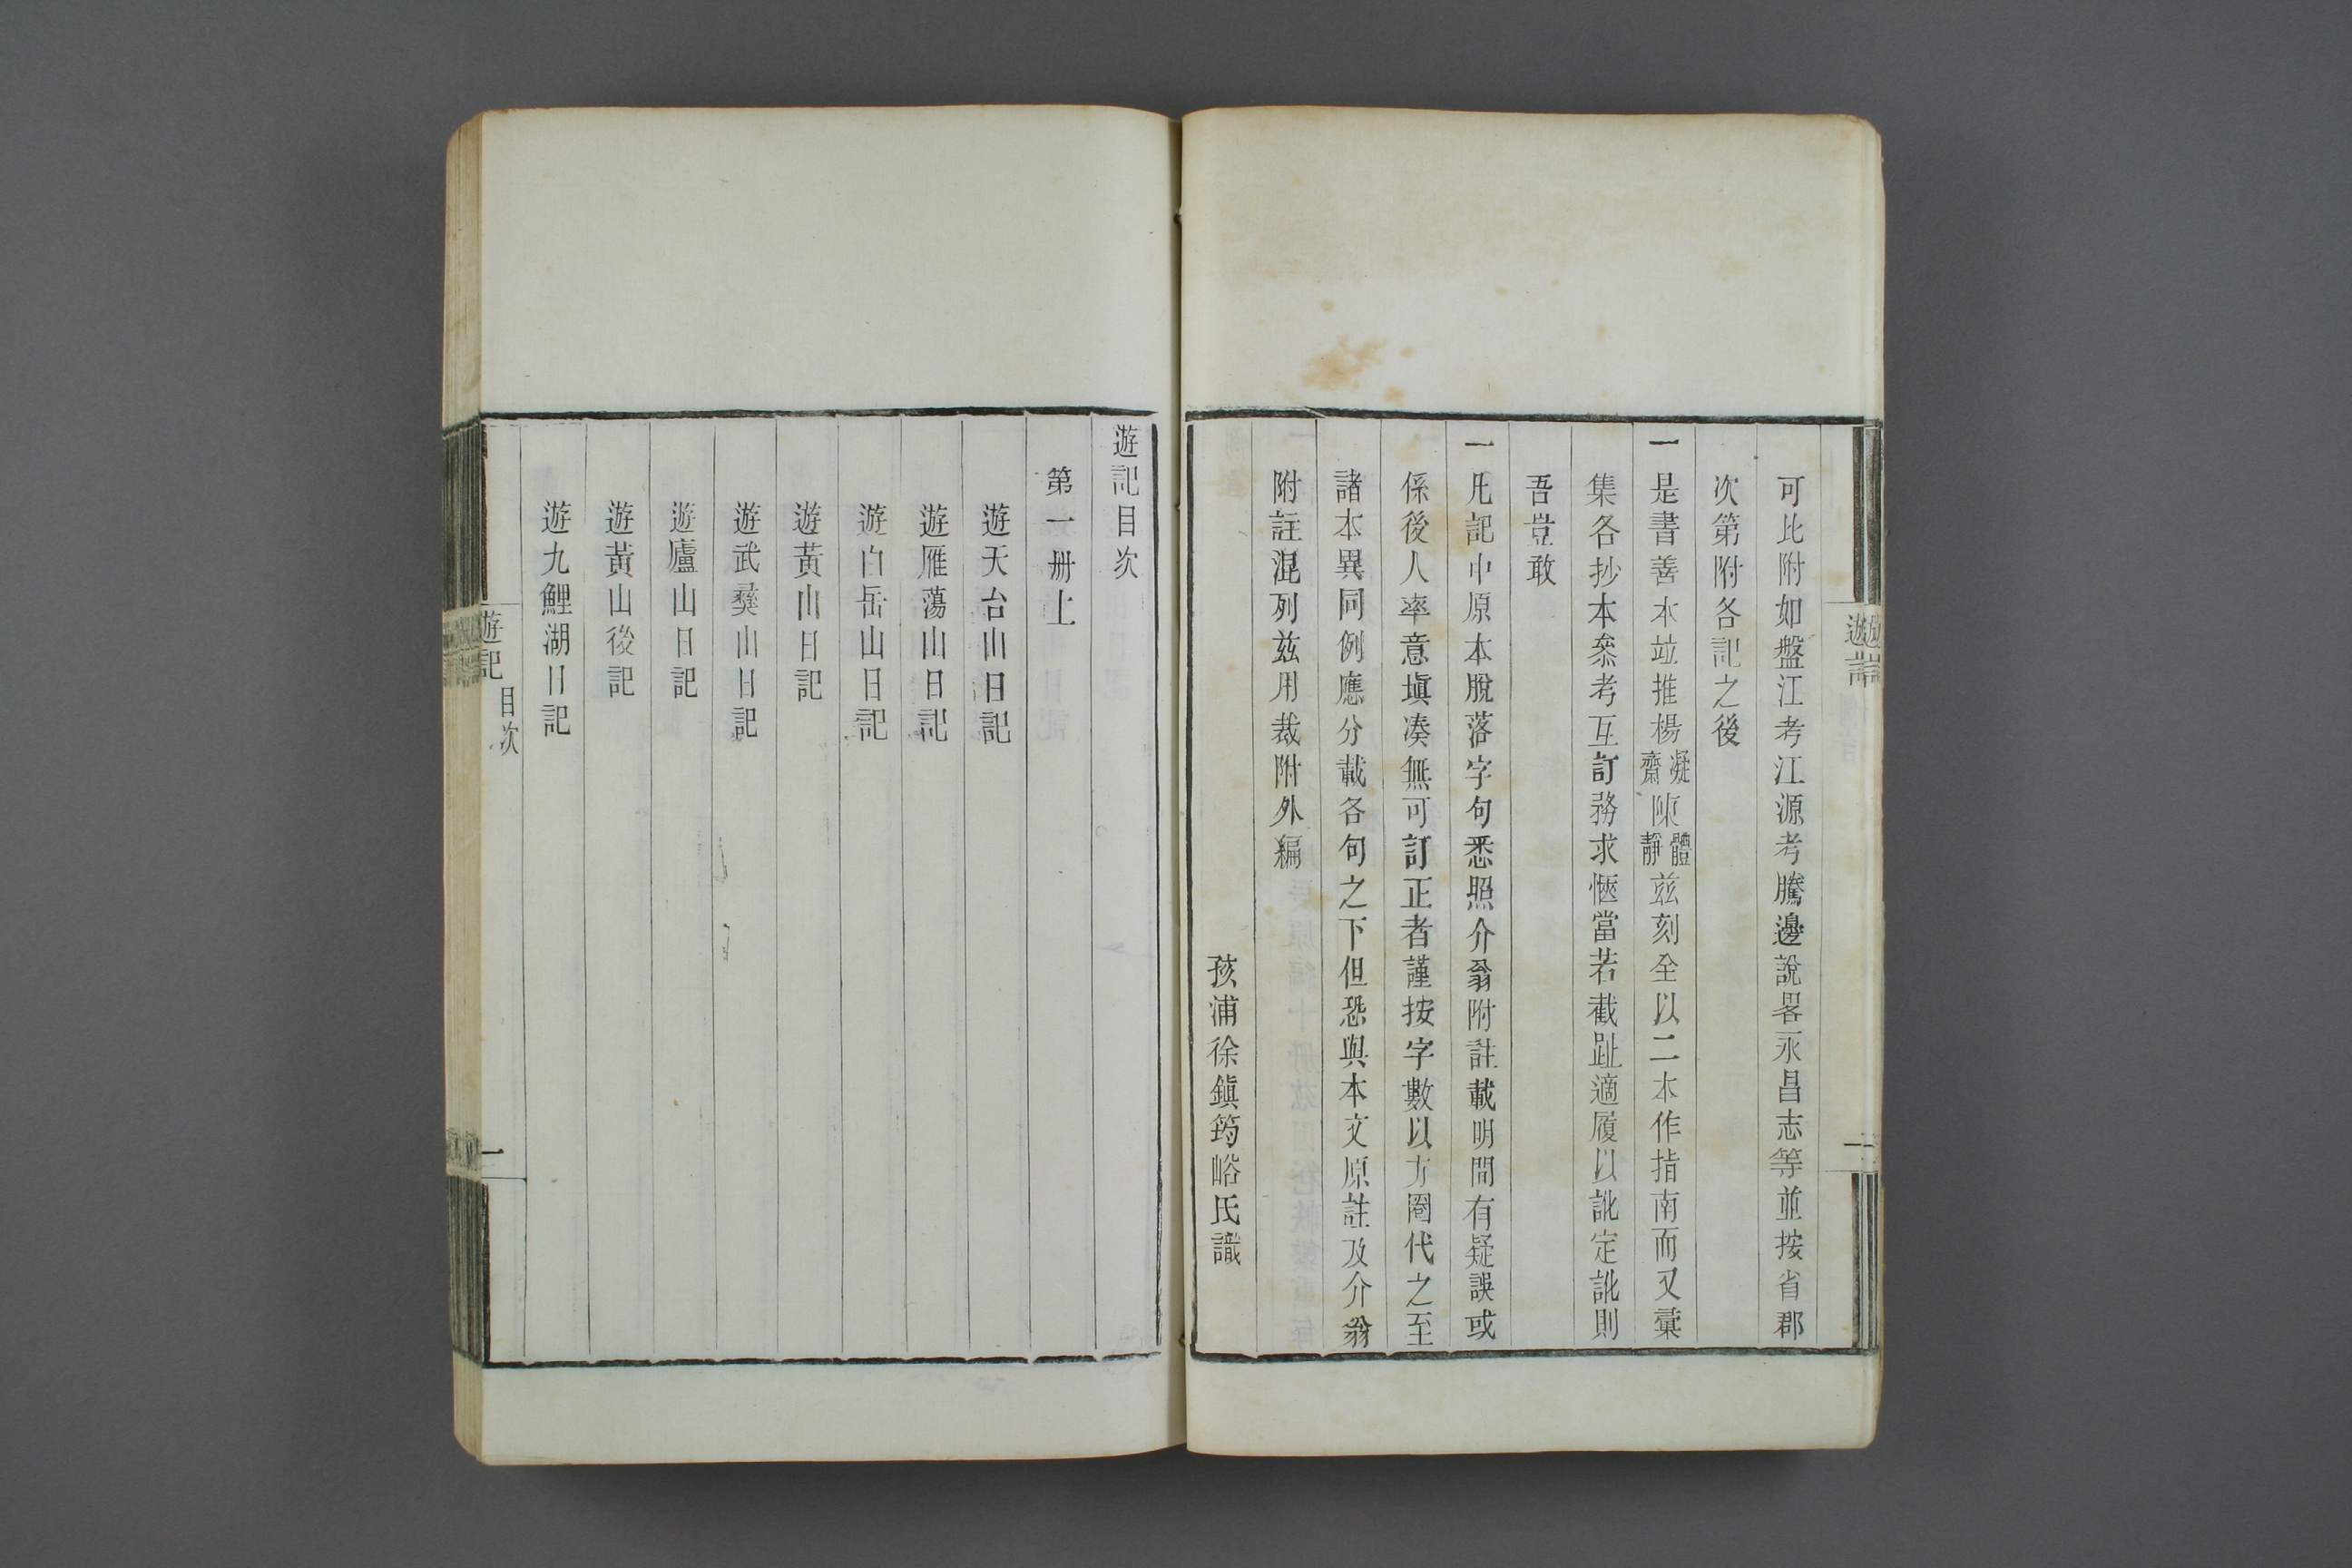 可比附如盤江考江源考騰邊說畧永昌志等並按省郡
次第附各記之後
一是書善本竝推楊凝齋陳體靜茲刻全以二本作指南而又彙
集各抄本叅考互訂務求愜當若截趾適履以訛定訛則
吾豈敢
一凡記中原本脫落字句悉照介翁附註載明間有疑誤或
係後人率意塡凑無可訂正者謹按字數以方圏代之至
諸本異同例應分載各句之下但恐與本文原註及介翁
附註混列茲用裁附外編
孩浦徐鎭筠峪氏識
遊記目次
第一册上
遊天台山日記
遊雁蕩山日記
游白岳山日記
遊黃山日記
遊武彝山日記
遊廬山日記
遊黃山後記
遊九鯉湖日記
遊記
目次
一